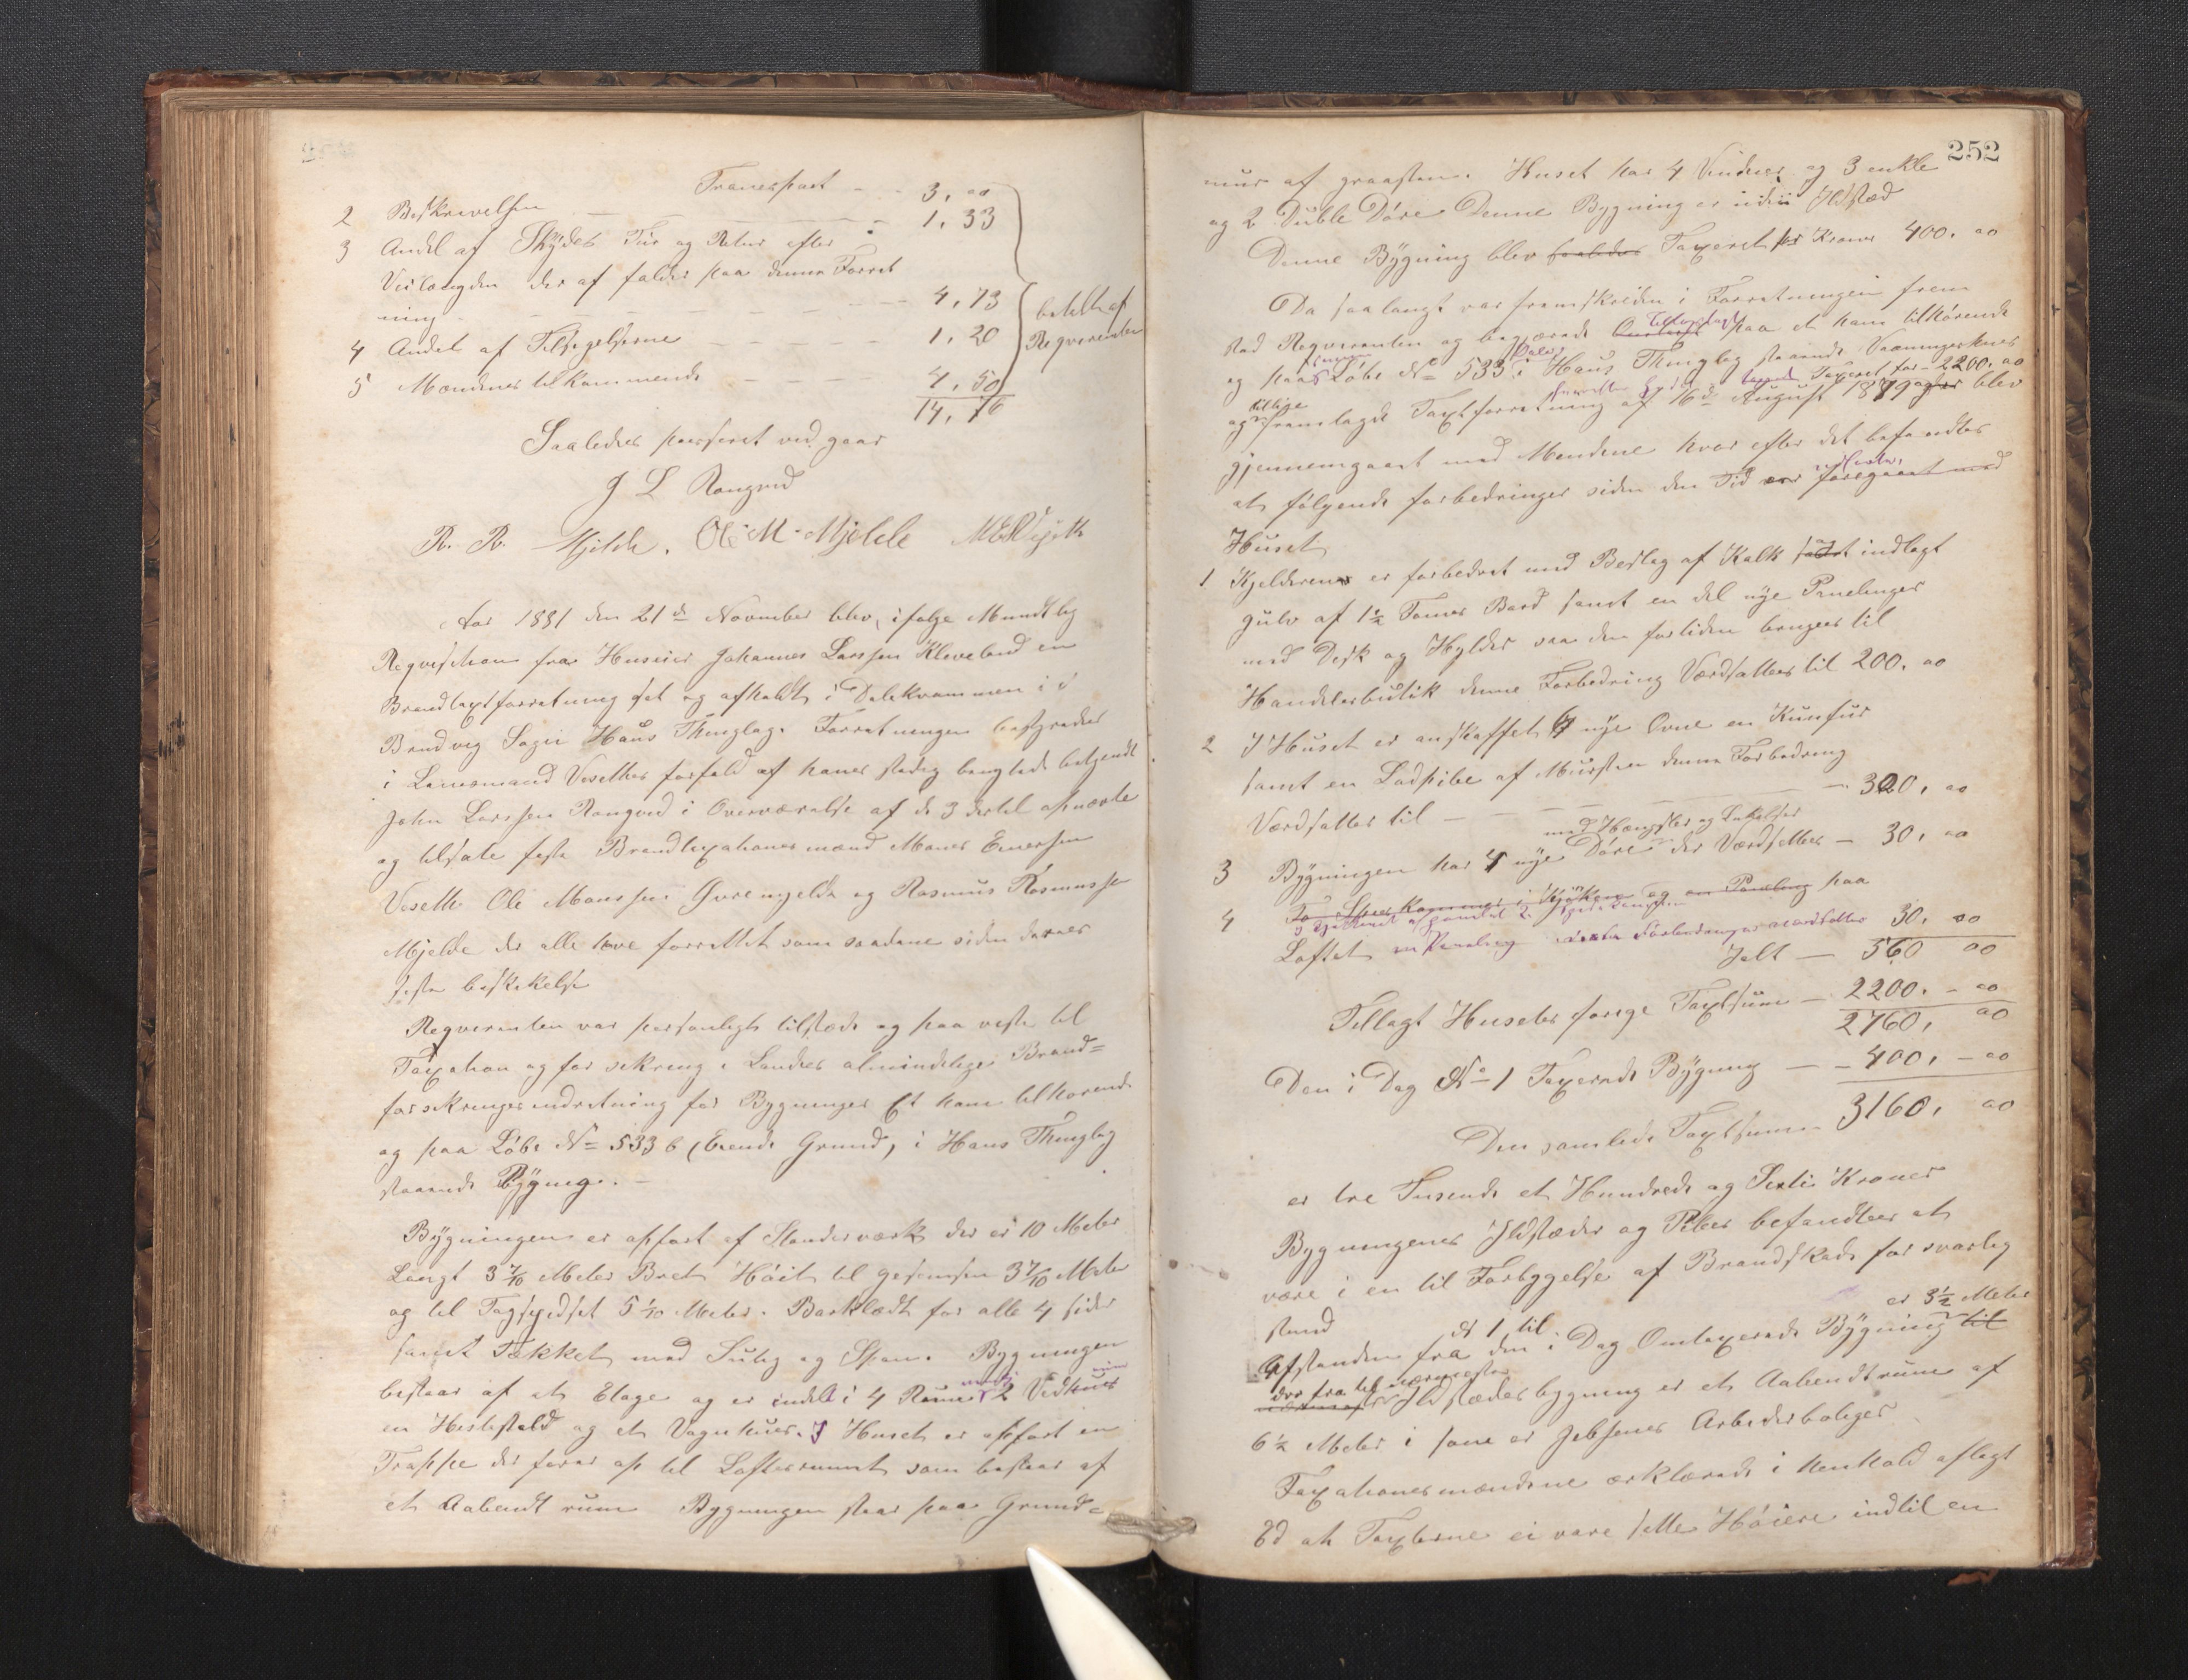 Transport - - 3, 00
2 Beskrivelsen - - - - 1, 33
3 Andel af Skyds Tur og Retur efter
Veilængden der af falder paa denne Forret
ning - - - - 4, 73
4 Andel af Tilsigelserne - - - 1, 20
5 Mændenes tilkommende - - - 4, 50
14, 76
betalt af
Reqverenten
Saaledes passeret vedgaar
J L Rongved
R. R. Mjelde. Ole M. Mjelde
Aar 1881 den 21de November blev, ifølge Mundtlig
Reqvisition fra Huseier Johannes Larssen Kleveland en
Brandtaxtforretning sat og afholdt i Dalekvammen i
Brudvig Sogn Haus Thinglag. Forretningen bestyredes
i Lensmand Veseths forfald af hans stadig brugende betjendt
John Larssen Rongved i Overværelse af de 3 dertil opnævnte
og tilsatte faste Brandtaxtationsmænd Mons Einersen
Veseth Ole Monssen Øvremjelde og Rasmus Rasmussen
Mjelde der alle have forrettet som saadane siden deres
faste beskikkelse
Reqverenten var personligt tilstæde og paa viste til
Taxation og for sikring i Landets almindelige Brand=
forsikringsindretning for Bygninger Et ham tilhørende
og paa Løbe No 533 b (Eiende Grund) i Haus Thinglag
staaende Bygning. —
Bygningen er opført af Standerværk der er 10 Meter
Langt 3 7/10 Meter Bret Høit til gesimsen 3 7/10 Meter
og til Tagspidset 5 1/10 Meter. Bordklædt for alle 4 sider
samt Tækket med Sutag og Span. Bygningen
bestaar af et Etage og er inddelt i 4 Rum 2 Vedhuse
en Hestestald og et Vognhuus. I Huset er opført en
Trappe der fører op til Loftsrummet som bestaar af
et Aabendt rum Bygningen staar paa Grund=
252
mur af graasten. Huset har 4 Vinduer og 3 enkle
og 2 Duble Døre Denne Bygning er uden Ildstæd
Denne Bygning blev saaledes Taxeret for Kroner 400. 00
Da saa langt var fremskriden i Forretningen frem
stod Reqverenten og begjærede Omtaxt Tillægstaxt paa et ham tilhørende
og paa samme Løbe No 533 i Haus Thinglag staaende Vaaningshuus
Taxeret for 2200. 00
og tillige fremlagde Taxtforretning af 16de August 1879 blev
gjennemgaaet med Mændene hvor efter det befandtes
at følgende forbedringer siden den Tid var foregaaet med
Huset
1 Kjelderen er forbedret med Beslag af Kalk samt indlagt
gulv af 1½ Tomes Bord samt en del nye Panelinger
med Disk og Hylder saa den fortiden bruges til
Handelsbutik denne Forbedring Værdsattes til 200. 00
2 I Huset er anskaffet 4 nye Ovne en Kumfur
samt en Ladpibe af Mursten denne Forbedring
Værdsattes til - - - - 320, 00
med Hængsler og Lukkelser
3 Bygningen har 4 nye Døre der Værdsettes — 30, 00
4 To Spiskammer i Kjøken og en Paneling paa
Loftet en Paneling disse Forbedringer værdsattes 30. 00
Ialt — 560 00
Tillagt Husets forige Taxtsum — 2200. - 00
2760, 00
Den i Dag No 1 Taxerede Bygning — 400, - 00
Den samlede Taxtsum 3160, 00
er tre Tusende et Hundrede og Sexti Kroner
Bygningenes Ildstæder og Piber befandtes at
være i en til Forbyggelse af Brandskade forsvarlig
stand
er 3½ Meter
Afstanden fra den No 1 til i Dag Omtaxerede Bygning til
der fra til nærmeste Ildstædes bygning er et Aabendt rum af
6½ Meter i som er Jebsens Arbeiderboliger
Taxationsmændene erklærede i henhold aflagt
Ed at Taxterne ei vare satte Høiere indtil en